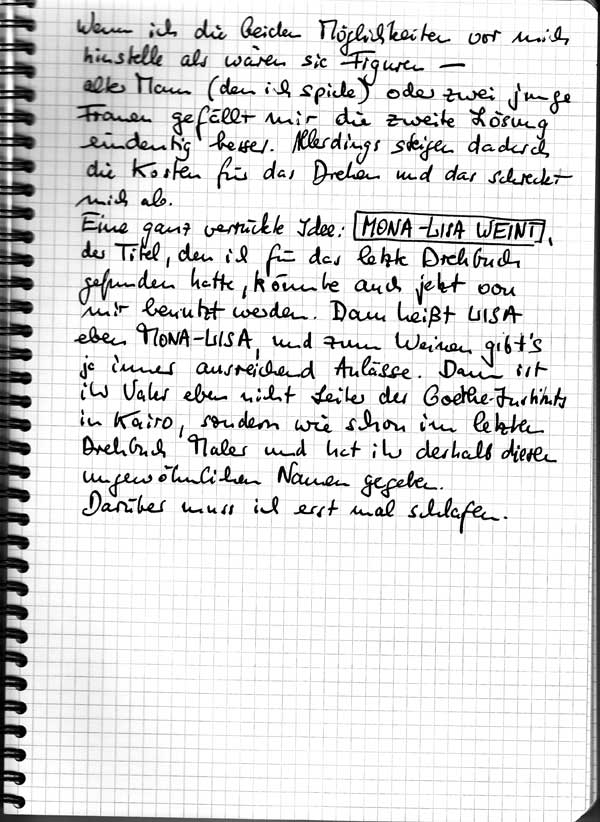 Wenn ich die beiden Möglichkeiten vor mich
hinstelle als wären sie Figuren —
alter Mann (den ich spiele) oder zwei junge
Frauen gefällt mir die zweite Lösung
eindeutig besser. Allerdings steigen dadurch
die Kosten für das Drehen und das schreckt
mich ab.
Eine ganz verrückte Idee: MONA-LISA WEINT,
der Titel, den ich für das letzte Drehbuch
gefunden hatte, könnte auch jetzt von
mir benutzt werden. Dann heißt LISA
eben MONA-LISA, und zum Weinen gibt's
ja immer ausreichend Anlässe. Dann ist
ihr Vater eben nicht Leiter des Goethe-Instituts
in Kairo, sondern wie schon im letzten
Drehbuch Maler und hat ihr deshalb diesen
ungewöhnlichen Namen gegeben.
Darüber muss ich erst mal schlafen.